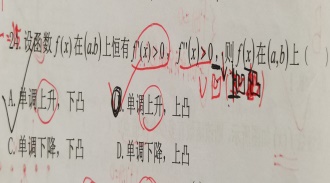 24. 设函数 f(x) 在 (a,b) 上恒有 f'(x)>0, f''(x)>0, 则 f(x) 在 (a,b) 上 ( )
A. 单调上升, 下凸 B. 单调上升, 上凸
C. 单调下降, 下凸 D. 单调下降, 上凸